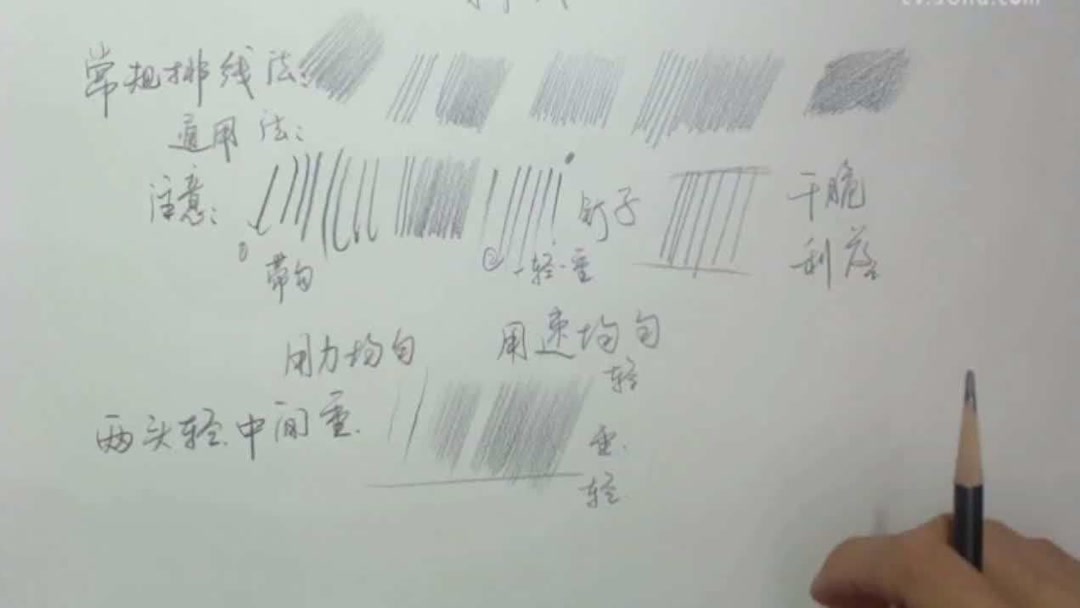 常规排线法:
通用法:
注意:
① 带勾
② 一轻一重
钉子
干脆
利落
用力均匀
用速均匀
两头轻中间重
轻
重
轻